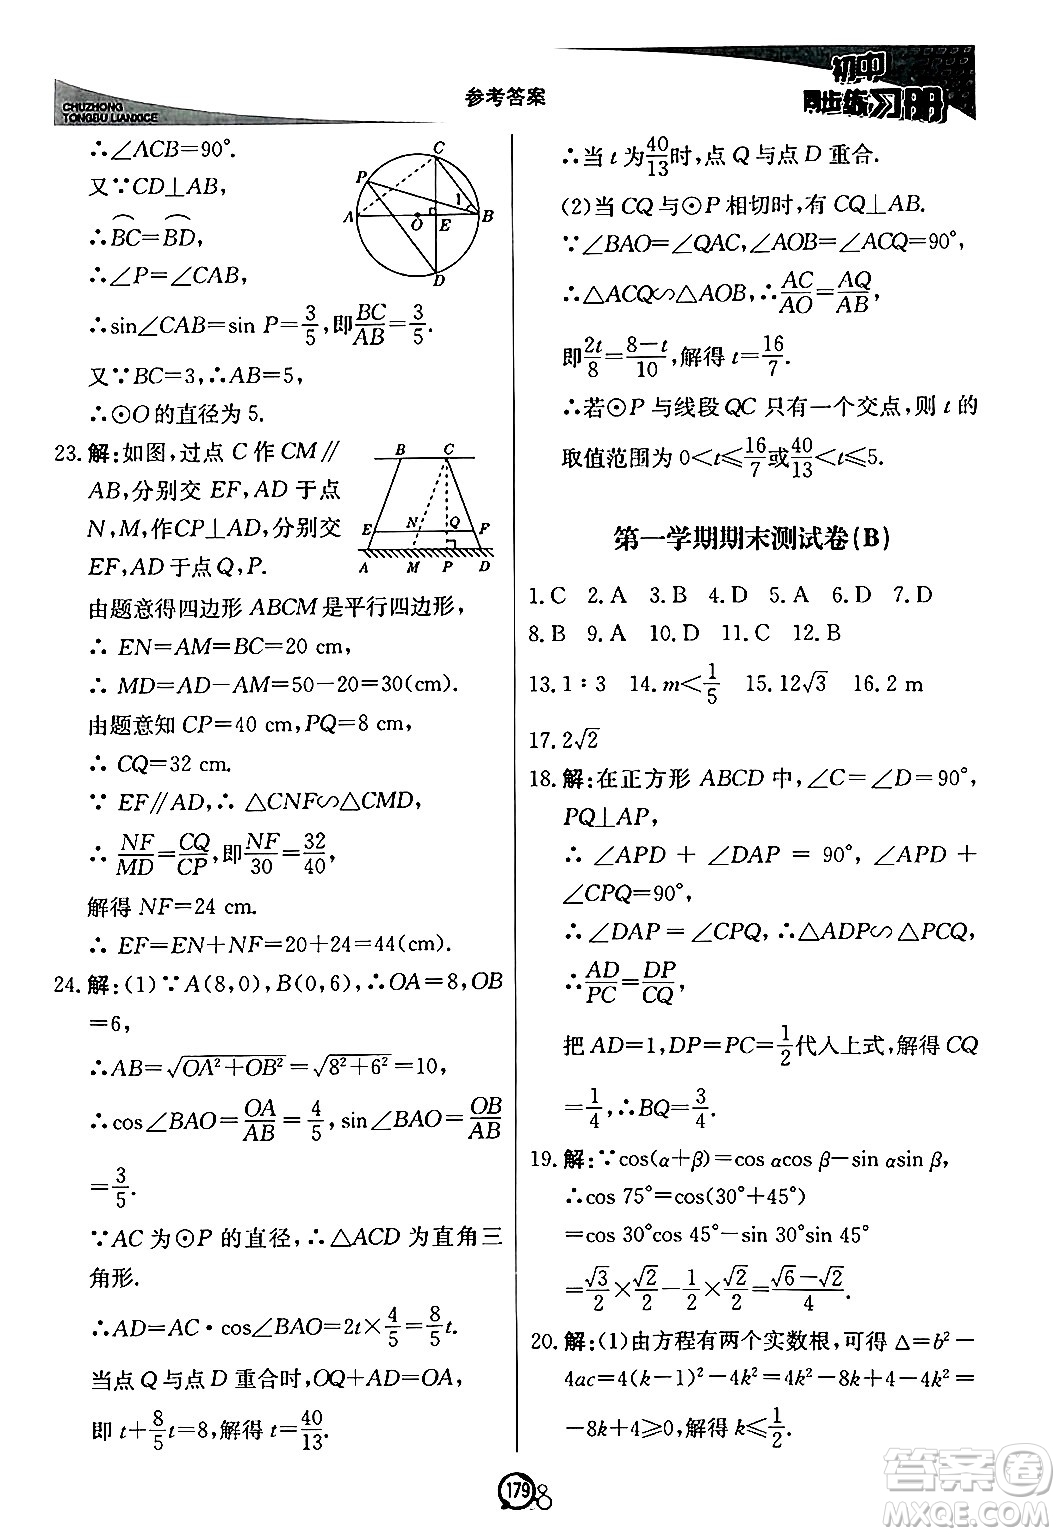 CHUZHONG
TONGBU LIANXICE
参考答案
初中
同步练习册
∴∠ACB=90°.
又∵CD⊥AB,
∴BC⌒=BD⌒,
∴∠P=∠CAB,
∴sin∠CAB=sin P=3/5,即BC/AB=3/5.
又∵BC=3,∴AB=5,
∴⊙O的直径为 5.
C
P
1
A
O
E
B
D
23.解:如图,过点 C 作 CM∥
AB,分别交 EF,AD 于点
N,M,作CP⊥AD,分别交
EF,AD于点Q,P.
B C
E N Q F
A M P D
由题意得四边形 ABCM 是平行四边形,
∴ EN=AM=BC=20 cm,
∴ MD=AD-AM=50-20=30(cm).
由题意知 CP=40 cm,PQ=8 cm,
∴ CQ=32 cm.
∵ EF∥AD,∴ △CNF∽△CMD,
∴ NF/MD=CQ/CP,即NF/30=32/40,
解得 NF=24 cm.
∴ EF=EN+NF=20+24=44(cm).
24.解:(1)∵A(8,0),B(0,6),∴OA=8,OB
=6,
∴AB=√(OA²+OB²)=√(8²+6²)=10,
∴cos∠BAO=OA/AB=4/5,sin∠BAO=OB/AB
=3/5.
∵AC 为⊙P 的直径,∴△ACD 为直角三
角形.
∴AD=AC·cos∠BAO=2t×4/5=8/5t.
当点 Q 与点 D 重合时,OQ+AD=OA,
即 t+8/5t=8,解得 t=40/13.
∴当 t 为40/13时,点 Q 与点 D 重合.
(2)当 CQ 与⊙P 相切时,有 CQ⊥AB.
∵∠BAO=∠QAC,∠AOB=∠ACQ=90°,
∴△ACQ∽△AOB,∴AC/AO=AQ/AB,
即2t/8=(8-t)/10,解得 t=16/7.
∴若⊙P 与线段 QC 只有一个交点,则 t 的
取值范围为 0<t≤16/7或40/13<t≤5.
第一学期期末测试卷(B)
1.C 2.A 3.B 4.D 5.A 6.D 7.D
8.B 9.A 10.D 11.C 12.B
13.1∶3 14.m<1/5 15.12√3 16.2 m
17.2√2
18.解:在正方形 ABCD 中,∠C=∠D=90°,
PQ⊥AP,
∴ ∠APD + ∠DAP = 90°,∠APD +
∠CPQ=90°,
∴ ∠DAP=∠CPQ,∴△ADP∽△PCQ,
∴AD/PC=DP/CQ,
把 AD=1,DP=PC=1/2代入上式,解得 CQ
=1/4,∴BQ=3/4.
19.解:∵cos(α+β)=cos αcos β-sin αsin β,
∴cos 75°=cos(30°+45°)
=cos 30°cos 45°-sin 30°sin 45°
=√3/2×√2/2-1/2×√2/2=(√6-√2)/4.
20.解:(1)由方程有两个实数根,可得 Δ=b²-
4ac=4(k-1)²-4k²=4k²-8k+4-4k²=
-8k+4≥0,解得 k≤1/2.
179
答案圈
MXQE.COM